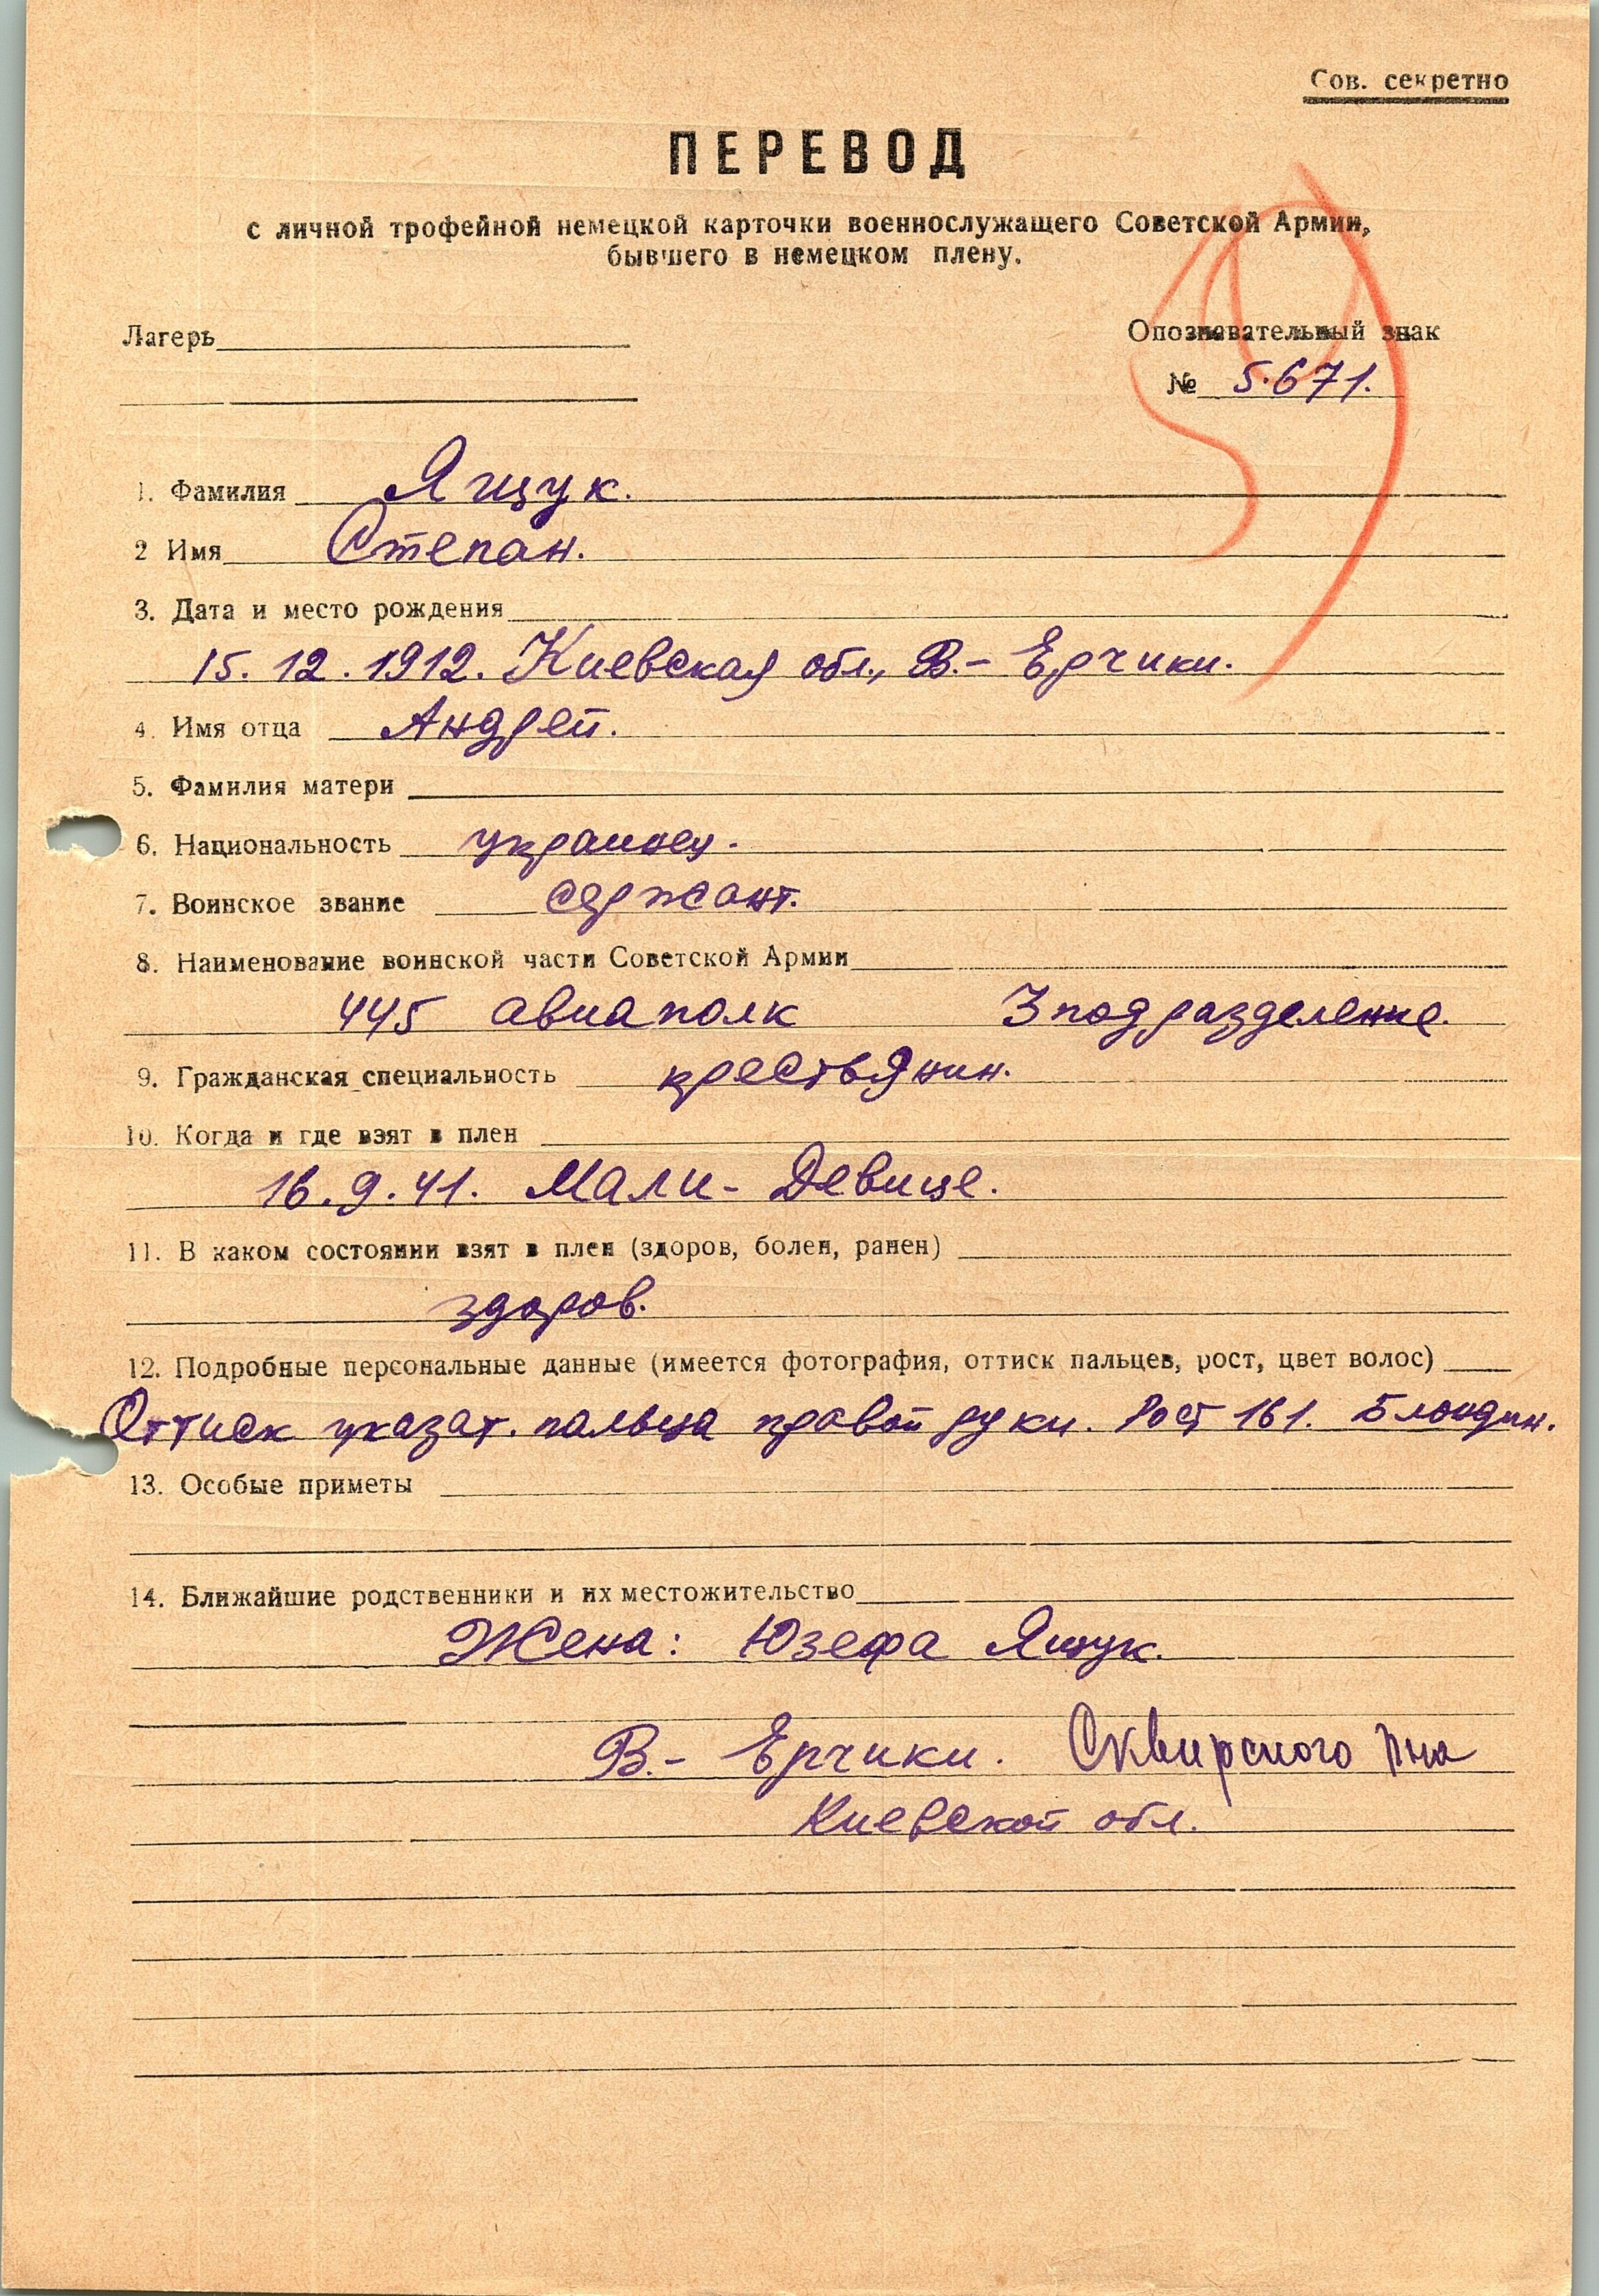 Сов. секретно
ПЕРЕВОД
с личной трофейной немецкой карточки военнослужащего Советской Армии,
бывшего в немецком плену.
Лагерь
Опознавательный знак
№ 5.671.
1. Фамилия Ящук.
2 Имя Степан.
3. Дата и место рождения
15.12.1912. Киевская обл., В.- Ерчики.
4. Имя отца Андрей.
5. Фамилия матери
6. Национальность украинец.
7. Воинское звание сержант.
8. Наименование воинской части Советской Армии
445 авиаполк 3 подразделение.
9. Гражданская специальность крестьянин.
10. Когда и где взят в плен
16.9.41. Мали- Девице.
11. В каком состоянии взят в плен (здоров, болен, ранен)
здоров.
12. Подробные персональные данные (имеется фотография, оттиск пальцев, рост, цвет волос)
Оттиск указат. пальца правой руки. Рост 161. Блондин.
13. Особые приметы
14. Ближайшие родственники и их местожительство
Жена: Юзефа Ящук.
В.- Ерчики. Сквирского р-на
Киевской обл.